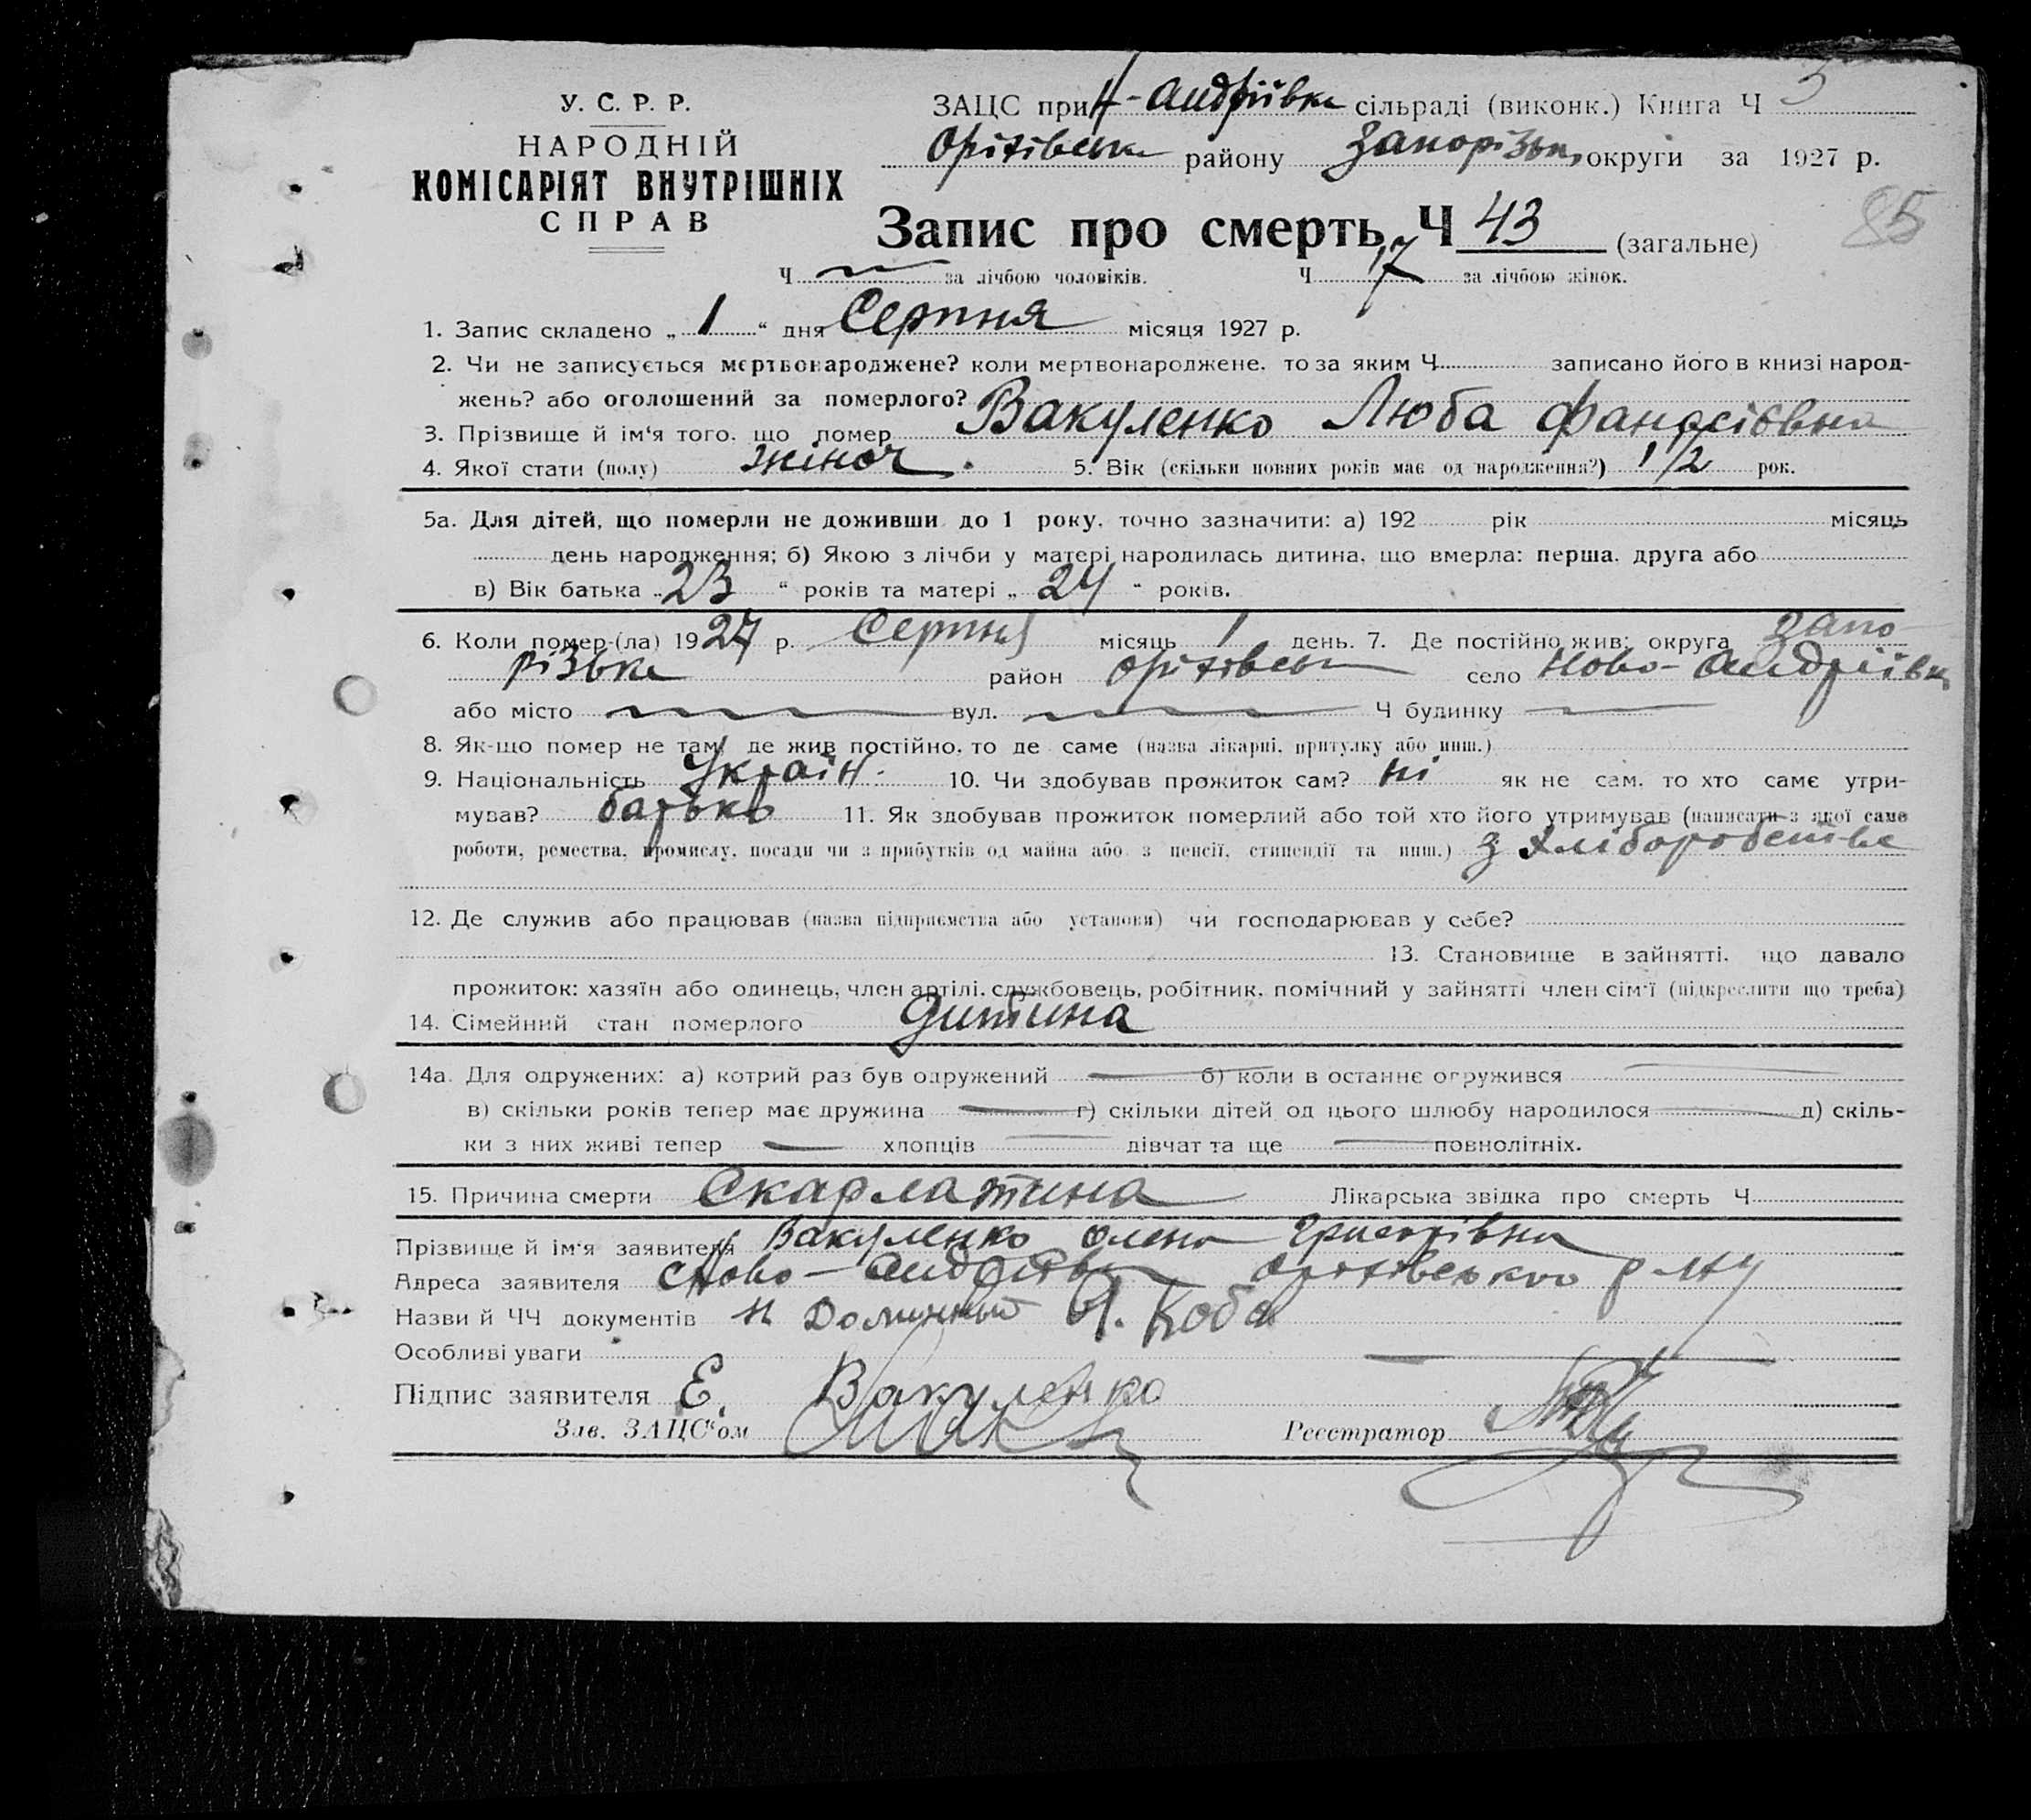 У. С. Р. Р.
НАРОДНІЙ
КОМІСАРІЯТ ВНУТРІШНІХ
СПРАВ
ЗАЦС при Н-Андріївка сільраді (виконк.) Книга Ч 3
Оріхівськ району Запорізьк. округи за 1927 р.
85
Запис про смерть Ч 43 (загальне)
Ч за лічбою чоловіків. Ч 17 за лічбою жінок.
1. Запис складено „ 1 “ дня Серпня місяця 1927 р.
2. Чи не записується мертвонароджене? коли мертвонароджене, то за яким Ч записано його в книзі народ-
жень? або оголошений за померлого?
3. Прізвище й ім‘я того, що помер Вакуленко Люба Фанасіївна
4. Якої стати (полу) жіноч. 5. Вік (скільки повних років має од народження?) 1 1/2 рок.
5а. Для дітей, що померли не доживши до 1 року, точно зазначити: а) 192 рік місяць
день народження; б) Якою з лічби у матері народилась дитина, що вмерла: перша, друга або
в) Вік батька „ 23 “ років та матері „ 24 “ років.
6. Коли помер-(ла) 1927 р. Серпня місяць 1 день. 7. Де постійно жив: округа Запо-
різька район Оріхівськ село Ново-Андріївка
або місто вул. Ч будинку
8. Як-що помер не там, де жив постійно, то де саме (назва лікарні, притулку або инш.)
9. Національність Україн. 10. Чи здобував прожиток сам? ні як не сам, то хто саме утри-
мував? батько 11. Як здобував прожиток померлий або той хто його утримував (написати з якої саме
роботи, ремества, промислу, посади чи з прибутків од майна або з пенсії, стипендії та инш.) з хліборобства
12. Де служив або працював (назва підприємства або установи) чи господарював у себе?
13. Становище в зайнятті, що давало
прожиток: хазяїн або одинець, член артілі, службовець, робітник, помічний у зайнятті член сім‘ї (підкреслити що треба)
14. Сімейний стан померлого дитина
14а. Для одружених: а) котрий раз був одружений б) коли в останнє огружився
в) скільки років тепер має дружина г) скільки дітей од цього шлюбу народилося д) скіль-
ки з них живі тепер хлопців дівчат та ще повнолітніх.
15. Причина смерти Скарлатина Лікарська звідка про смерть Ч
Прізвище й ім‘я заявителя Вакуленко Олена Григорівна
Адреса заявителя Ново-Андріївка Оріхівського р-ну
Назви й ЧЧ документів Коба
Особливі уваги
Підпис заявителя Е. Вакуленко
Зав. ЗАЦС‘ом Реєстратор